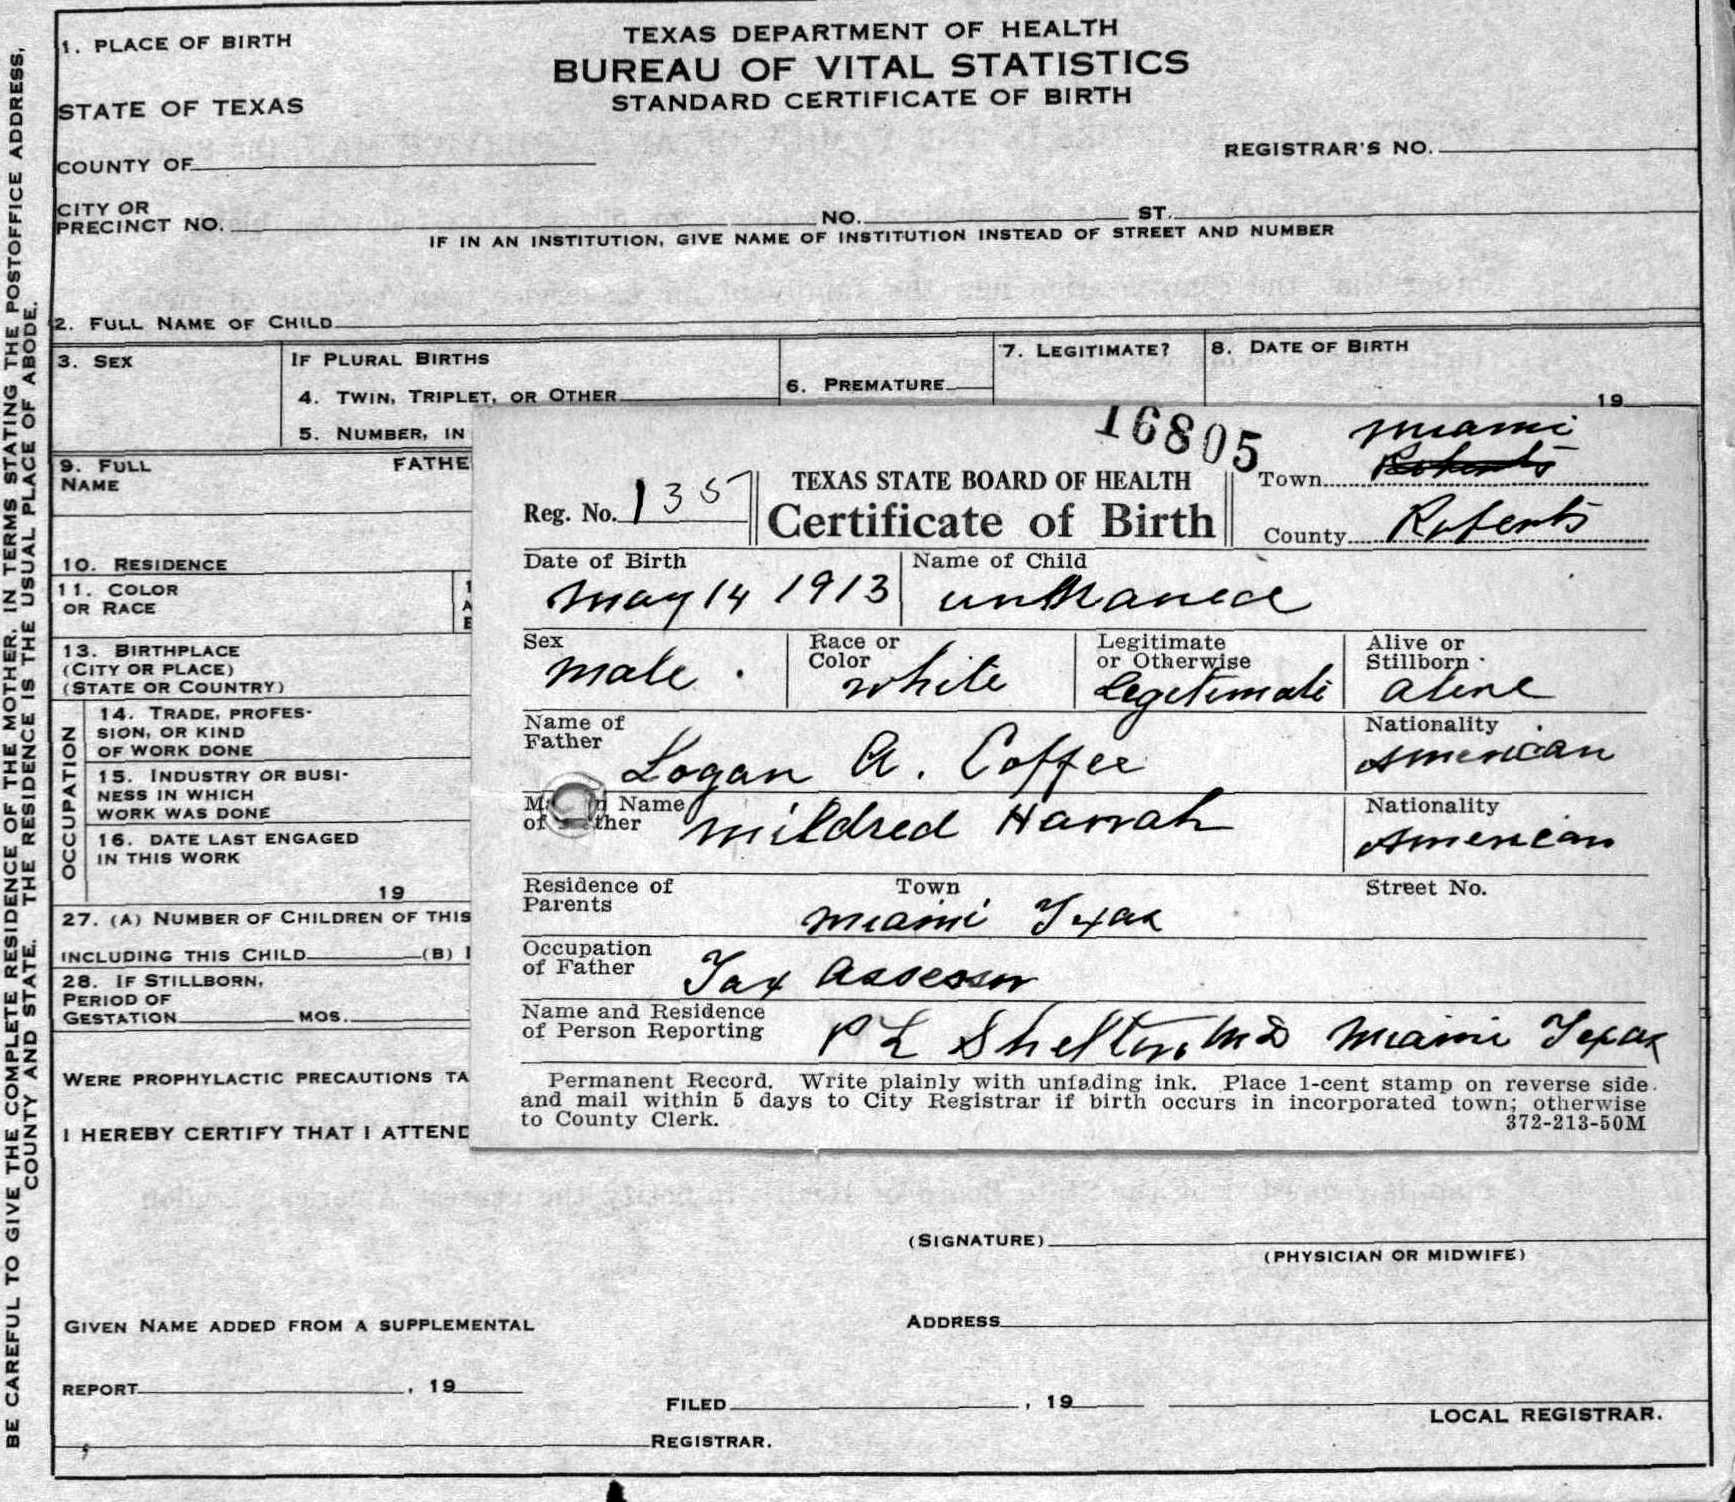 BE CAREFUL TO GIVE THE COMPLETE RESIDENCE OF THE MOTHER, IN TERMS STATING THE POSTOFFICE ADDRESS,
COUNTY AND STATE. THE RESIDENCE IS THE USUAL PLACE OF ABODE.
1. PLACE OF BIRTH
TEXAS DEPARTMENT OF HEALTH
BUREAU OF VITAL STATISTICS
STANDARD CERTIFICATE OF BIRTH
STATE OF TEXAS
COUNTY OF
REGISTRAR'S NO.
CITY OR
PRECINCT NO. NO. ST.
IF IN AN INSTITUTION, GIVE NAME OF INSTITUTION INSTEAD OF STREET AND NUMBER
2. FULL NAME OF CHILD
3. SEX
IF PLURAL BIRTHS
4. TWIN, TRIPLET, OR OTHER
5. NUMBER, IN
6. PREMATURE
7. LEGITIMATE?
8. DATE OF BIRTH
19
9. FULL
NAME
FATHE
10. RESIDENCE
11. COLOR
OR RACE
13. BIRTHPLACE
(CITY OR PLACE)
(STATE OR COUNTRY)
OCCUPATION
14. TRADE, PROFES-
SION, OR KIND
OF WORK DONE
15. INDUSTRY OR BUSI-
NESS IN WHICH
WORK WAS DONE
16. DATE LAST ENGAGED
IN THIS WORK
19
27. (A) NUMBER OF CHILDREN OF THIS
INCLUDING THIS CHILD (B)
28. IF STILLBORN,
PERIOD OF
GESTATION MOS.
WERE PROPHYLACTIC PRECAUTIONS TA
I HEREBY CERTIFY THAT I ATTEND
16805
Reg. No. 135
TEXAS STATE BOARD OF HEALTH
Certificate of Birth
Miami
Town Roberts
County Roberts
Date of Birth
May 14 1913
Name of Child
unNamed
Sex
Male
Race or
Color
White
Legitimate
or Otherwise
Legitimate
Alive or
Stillborn
Alive
Name of
Father
Logan A. Coffee
Nationality
American
Name
of
Mildred Harrah
Nationality
American
Residence of
Parents
Town
Miami Texas
Street No.
Occupation
of Father
Tax Assessor
Name and Residence
of Person Reporting
P L Shelton MD Miami Texas
Permanent Record. Write plainly with unfading ink. Place 1-cent stamp on reverse side
and mail within 5 days to City Registrar if birth occurs in incorporated town; otherwise
to County Clerk.
372-213-50M
(SIGNATURE)
(PHYSICIAN OR MIDWIFE)
GIVEN NAME ADDED FROM A SUPPLEMENTAL
ADDRESS
REPORT , 19
FILED , 19
LOCAL REGISTRAR.
REGISTRAR.